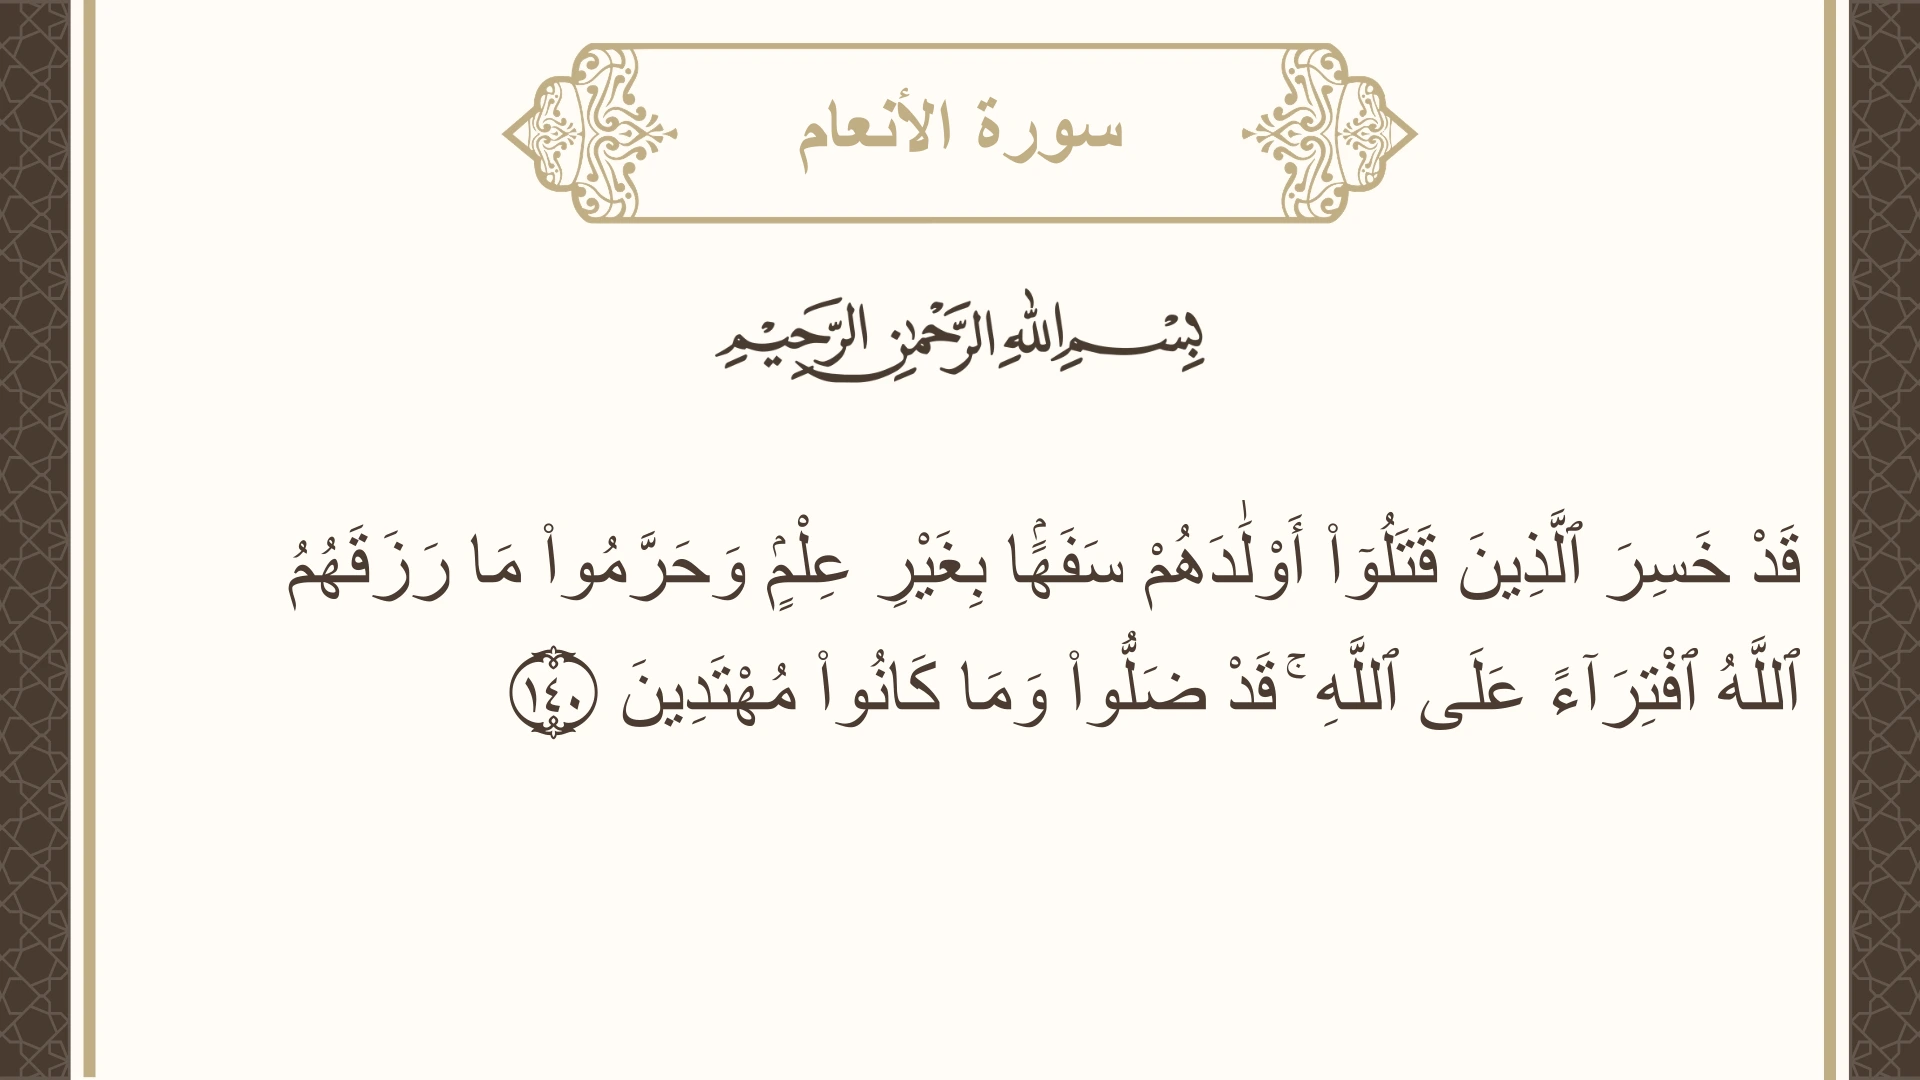 سورة الأنعام
بِسْمِ اللهِ الرَّحْمٰنِ الرَّحِيْمِ
قَدْ خَسِرَ ٱلَّذِينَ قَتَلُوٓا۟ أَوْلَـٰدَهُمْ سَفَهًۢا بِغَيْرِ عِلْمٍۢ وَحَرَّمُوا۟ مَا رَزَقَهُمُ
ٱللَّهُ ٱفْتِرَآءً عَلَى ٱللَّهِ ۚ قَدْ ضَلُّوا۟ وَمَا كَانُوا۟ مُهْتَدِينَ ١٤٠